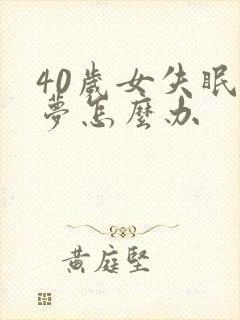 40歲女失眠
夢怎麼办
黃庭堅